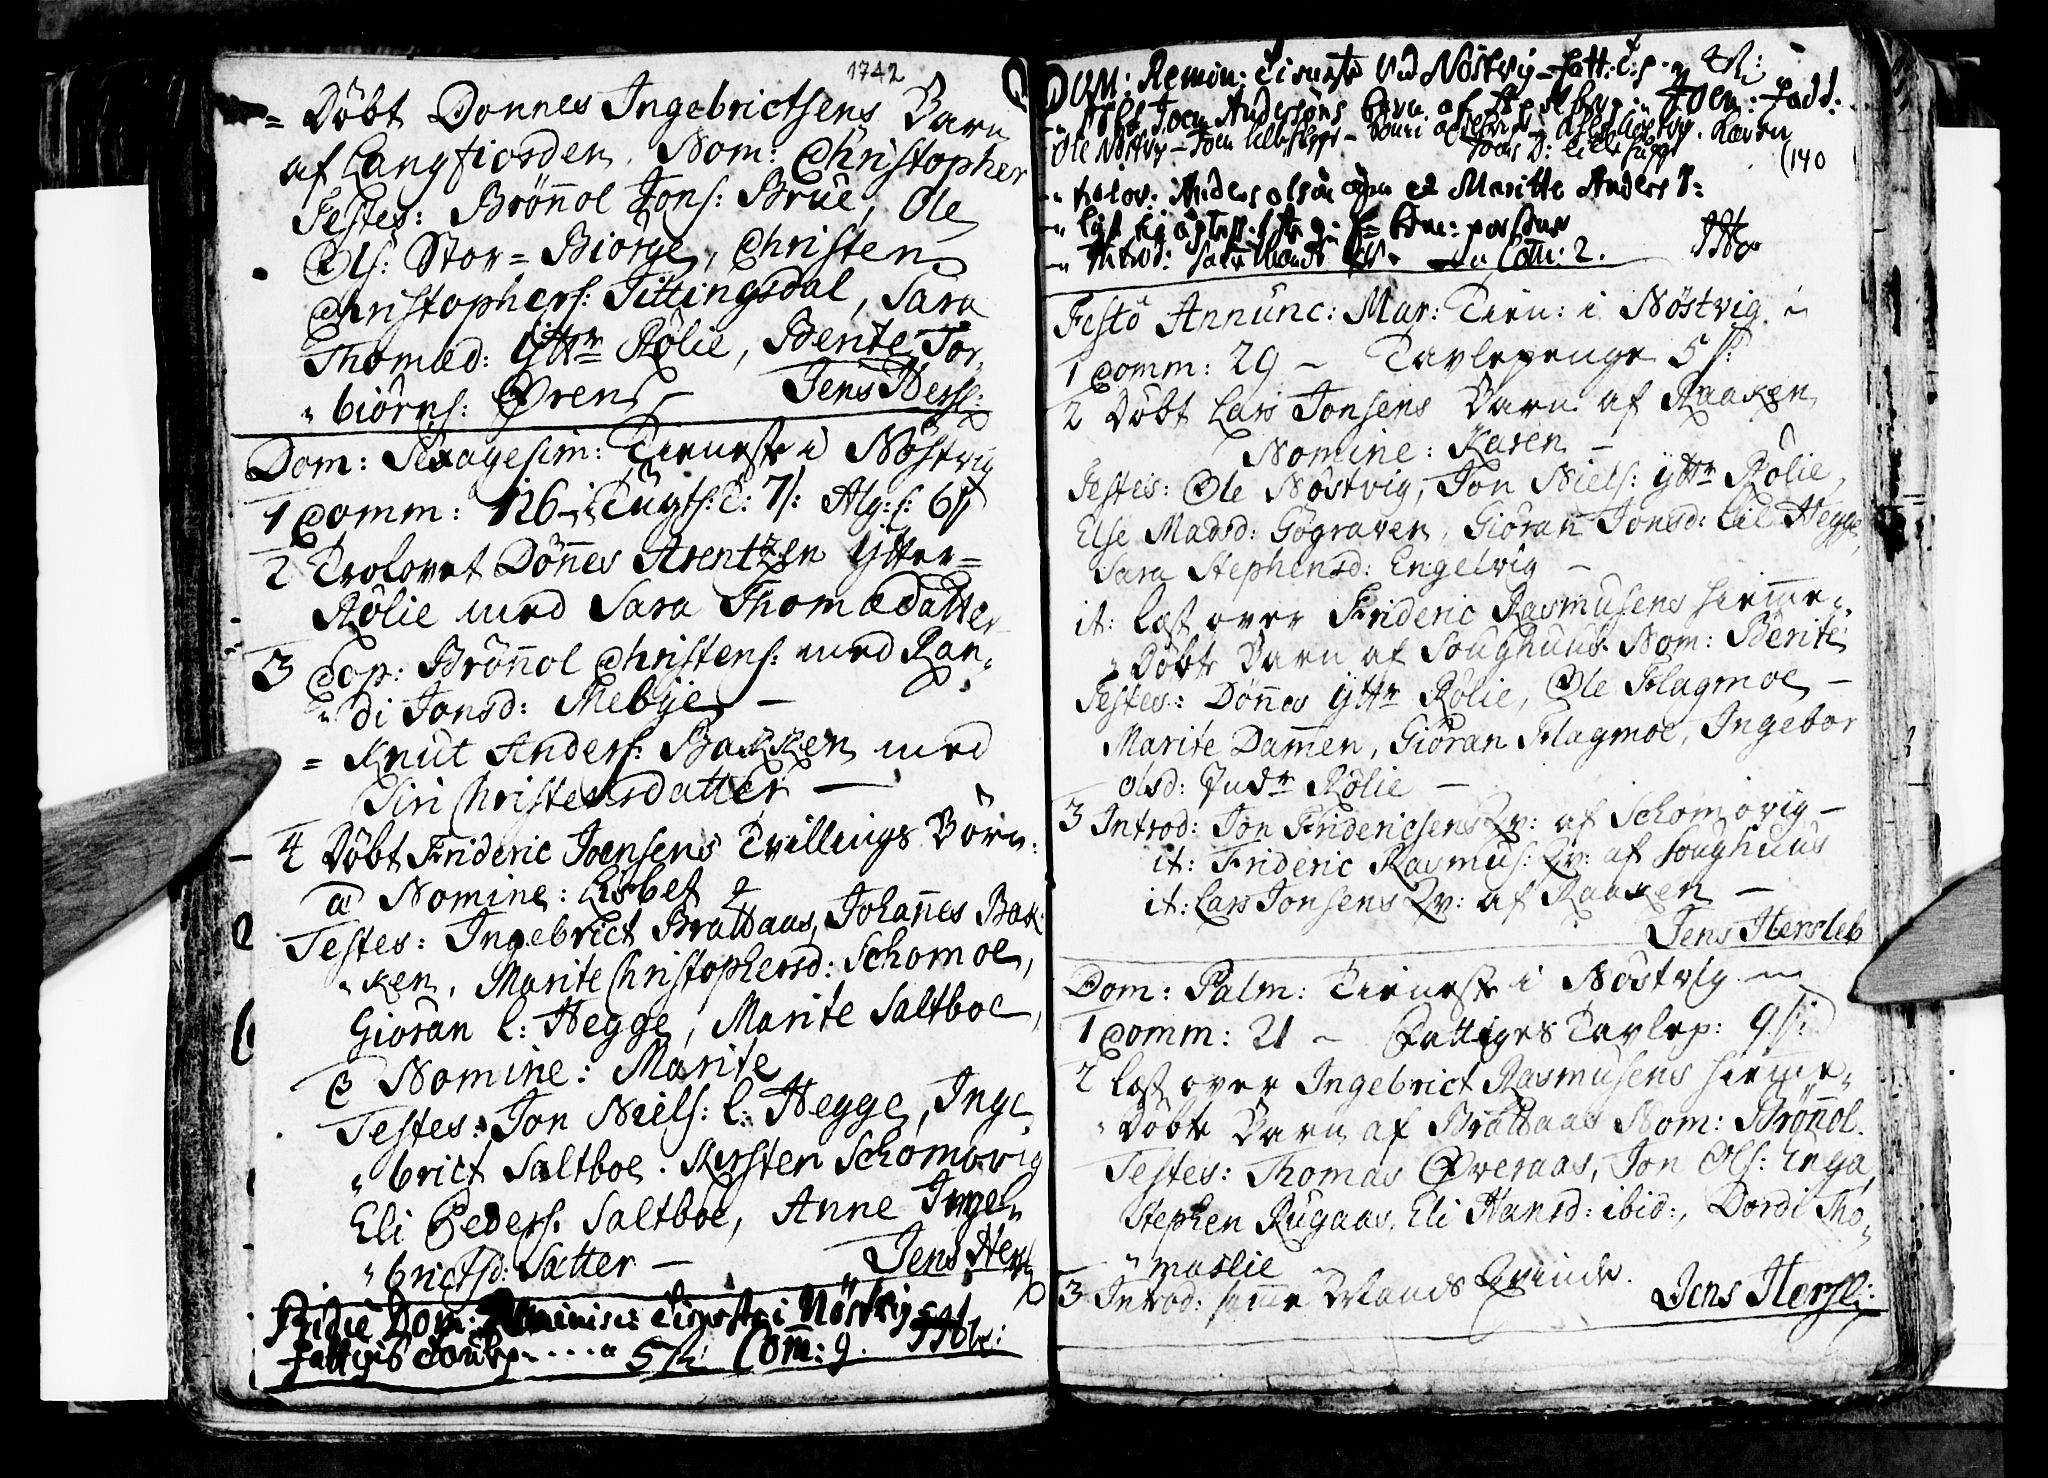 1742
= Döbt Donnes Ingebrictsens Barn
af Langfiorden. Nom: Christopher
Testes: Brönnol Jons: Brue, Ole
Ols: Stor= Biörge, Christen
Christophers: Tittingsdal, Sara
Thomæd: yttr Rölie, Berite Tor-
" biörns: Øren – Jens Hersl:
Dom: Sexagesim: Tieneste i Nöstvig
1 Comm: 126 – Tugts: C: 7 s: Alg: s: 6 s
2 Trolovet Dönnes Arentzen Ytter=
Rölie med Sara Thomædatter
3 Cop: Brönnol Christens: med Ran-
" di Jonsd: Mebye –
= Knut Anders: Bakken med
Siri Christensdatter –
4 Döbt Frideric Joensens Tvillings Börn:
a Nomine: Lisbet
Testes: Ingebrict Brattaas, Johannes Bak-
" ken, Marite Christophersd: Schomoe,
Giöran L: Hegge, Marite Saltboe,
Nomine: Marite
Testes: Jon Niels: L: Hegge, Inge
" brict Saltboe. Kirsten Schomovig
Eli Peders: Saltboe, Anne Ingel-
" brictsd: Sætter – Jens Hersl
Pridie Dom: Reminisc: Tieneste i Nöstvig
fattiges tavlep: .... 5 s: Com: 9.
DOM: Remin: Tieneste Ved Nöstvig – fatt:
Joen Andersöns barn af Joen: fadd:
Ole Nöstvig – Joen Lillehegge – Karen
(140
" trolov: Anders olsön et Maritte Anders D=
" Introd: Com: 2.
Festo Annunc: Mar: Tien: i Nöstvig
1 Comm: 29 – Tavlepenge 5 s:
2 Döbt Lars Jonsens Barn af Raaken
Nomine: Karen –
Testes: Ole Nöstvig, Jon Niels: yttr Rölie,
Else Madsd: Gögraven, Giöran Jonsd: Lil Hegge,
Sara Stephensd: Engelvig –
it: læst over Frideric Rasmusens hiemme-
" Döbte Barn af Soughuus. Nom: Berite
Testes: Dönnes yttr Rölie, Ole Flagmoe –
Marite Dammen, Giöran Flagmoe, Ingebor
olsd: Indr Rölie –
3 Introd: Jon Fridericsens Qv: af Schomovig –
it: Frideric Rasmus: Qv: af Soughuus
it: Lars Jonsens Qv: af Raaken –
Jens Hersleb
Dom: Palm: Tieneste i Nöstvig –
1 Comm: 21 – Fattiges Tavlep: 9 s:
2 læst over Ingebrict Rasmusens hiemme-
" Döbte Barn af Brattaas Nom: Brönnol.
Testes: Thomas Øveraas, Jon Ols: Enga,
Stephen Rugaas, Eli Hansd: ibid:, Dordi Tho-
" maslie
3 Introd: samme Mands Qvinde. Jens Hersl: